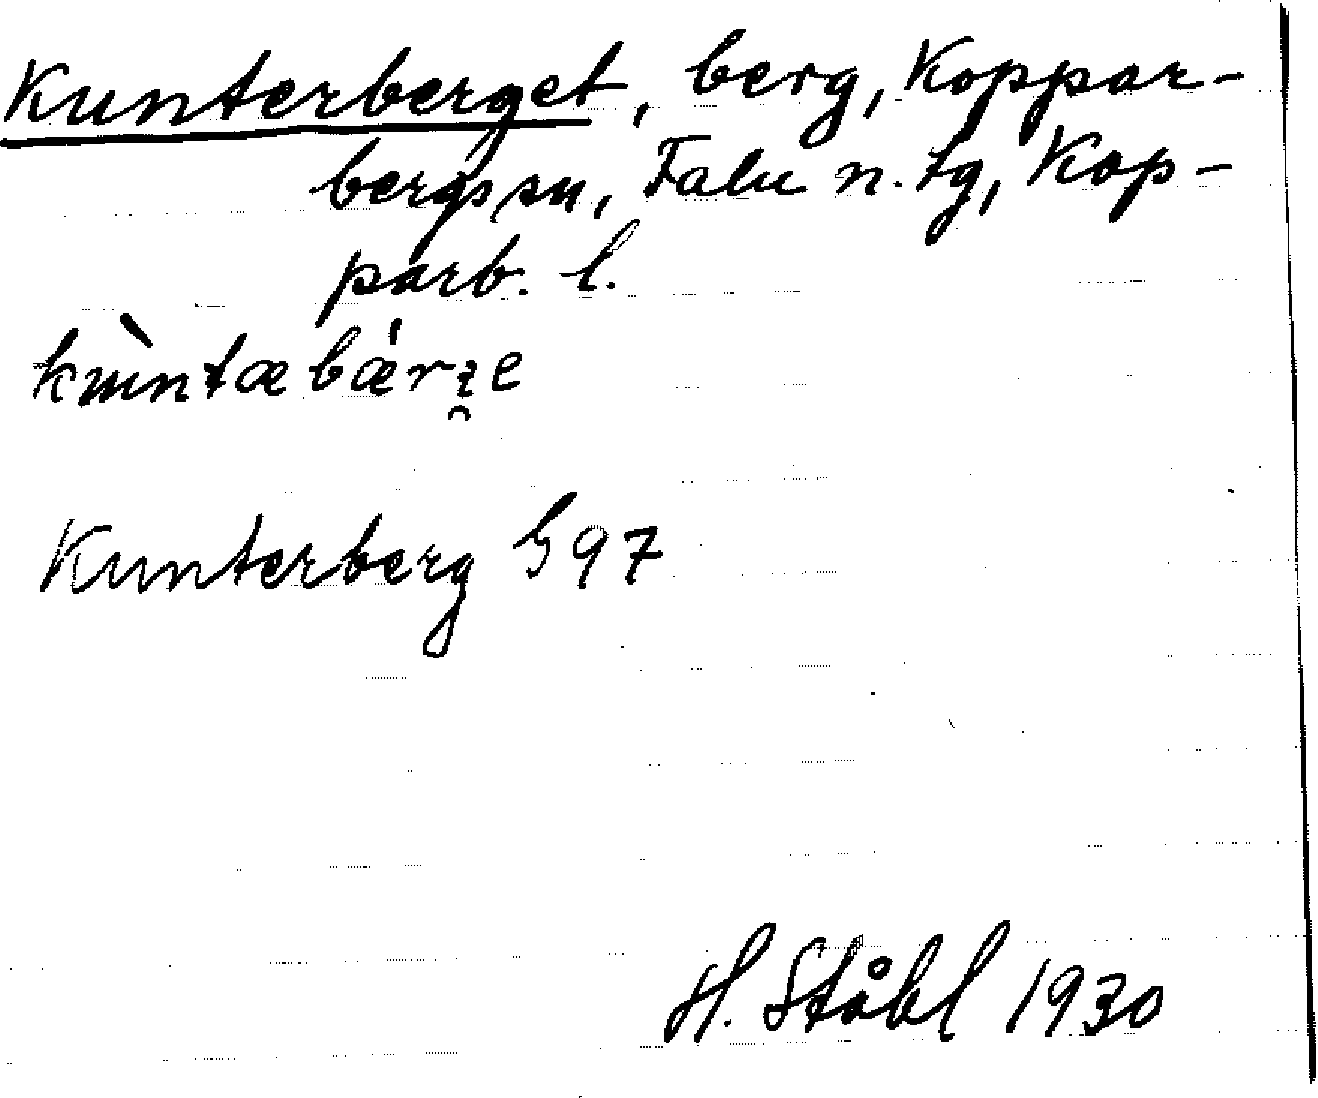 Kunterberget, berg, Koppar-
bergs sn, Falu n. tg, Kop-
parb. l.
kùntæbárʒe
Kunterberg G 97
H. Ståhl 1930